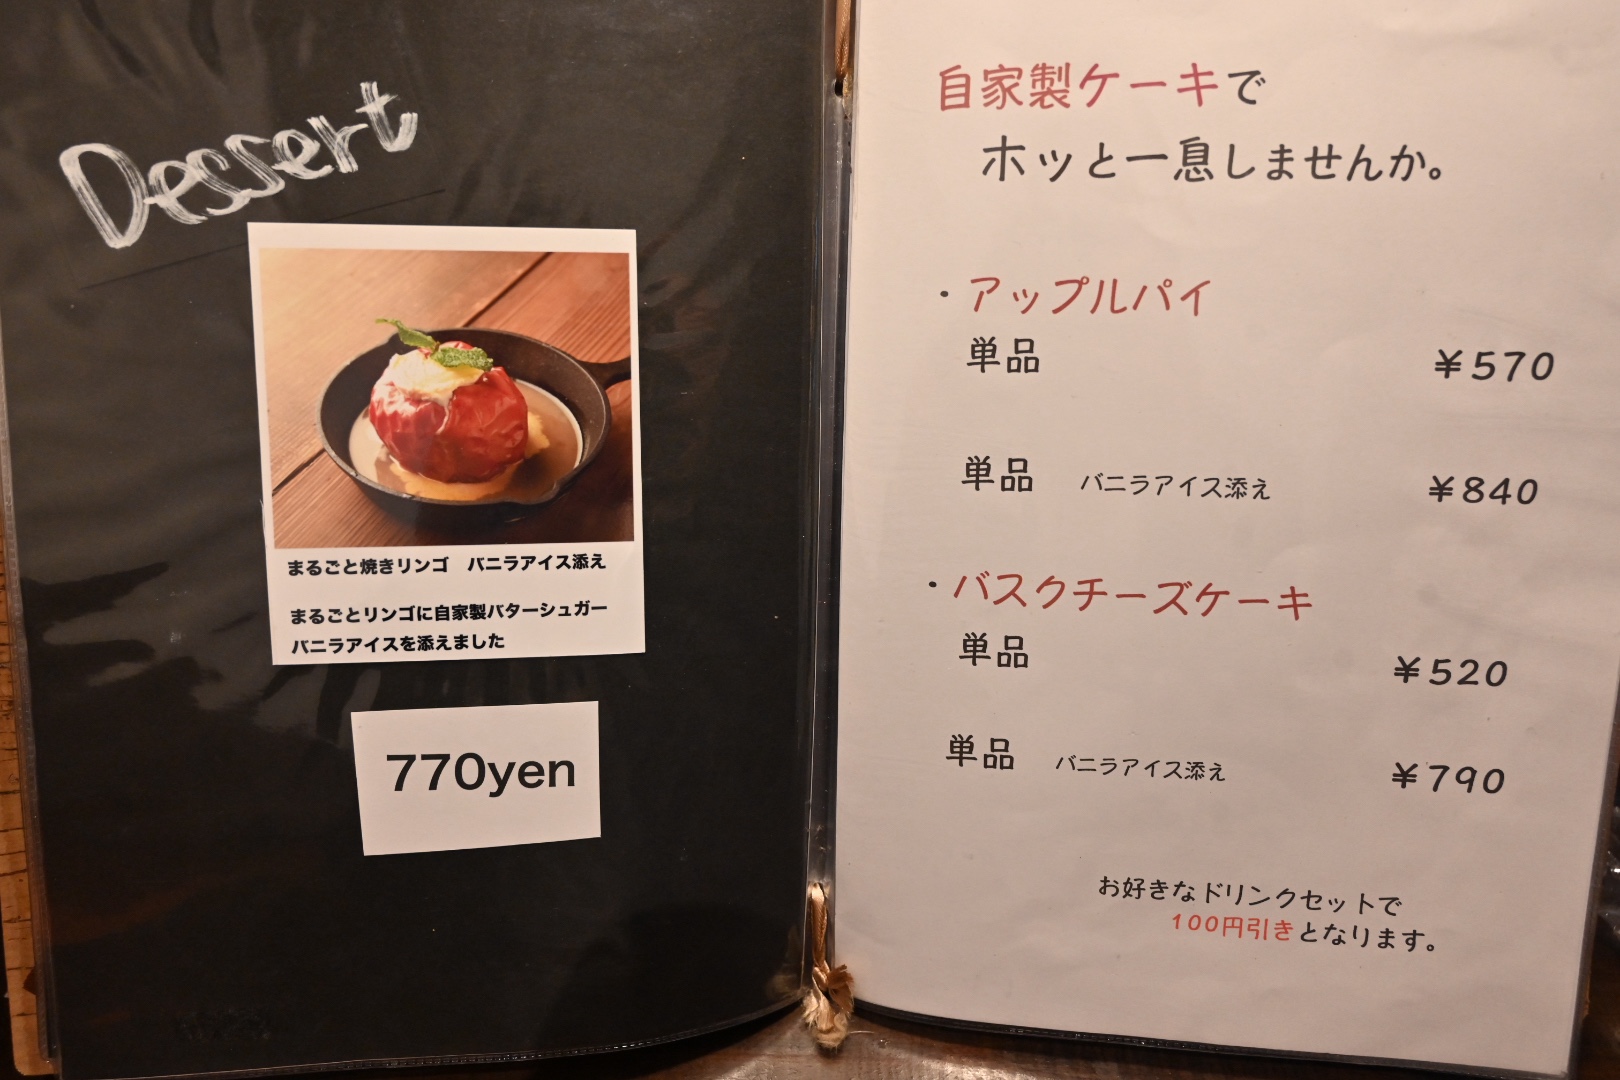 Dessert
まるごと焼きリンゴ　バニラアイス添え
まるごとリンゴに自家製バターシュガー
バニラアイスを添えました
770yen
自家製ケーキで
ホッと一息しませんか。
・アップルパイ
単品 ￥570
単品 バニラアイス添え ￥840
・バスクチーズケーキ
単品 ￥520
単品 バニラアイス添え ￥790
お好きなドリンクセットで
100円引きとなります。